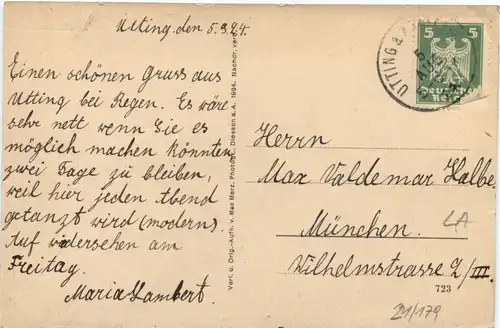 Utting. den 5.9.24.
Einen schönen Gruss aus
Utting bei Regen. Es wäre
sehr nett wenn Sie es
möglich machen könnten
zwei Tage zu bleiben,
weil hier jeden Abend
getanzt wird (modern).
Auf wiedersehen am
Freitag.
Maria Lambert.
Verl. u. Orig.-Aufn. v. Max Merz, Photogr., Diessen a. A. 1924. Nachdr. verb.
5 5
Deutsches
Reich
UTTING a.
Herrn
Max Valdemar Halbe
München.
Wilhelmstrasse 2/III.
LA
723
21/179